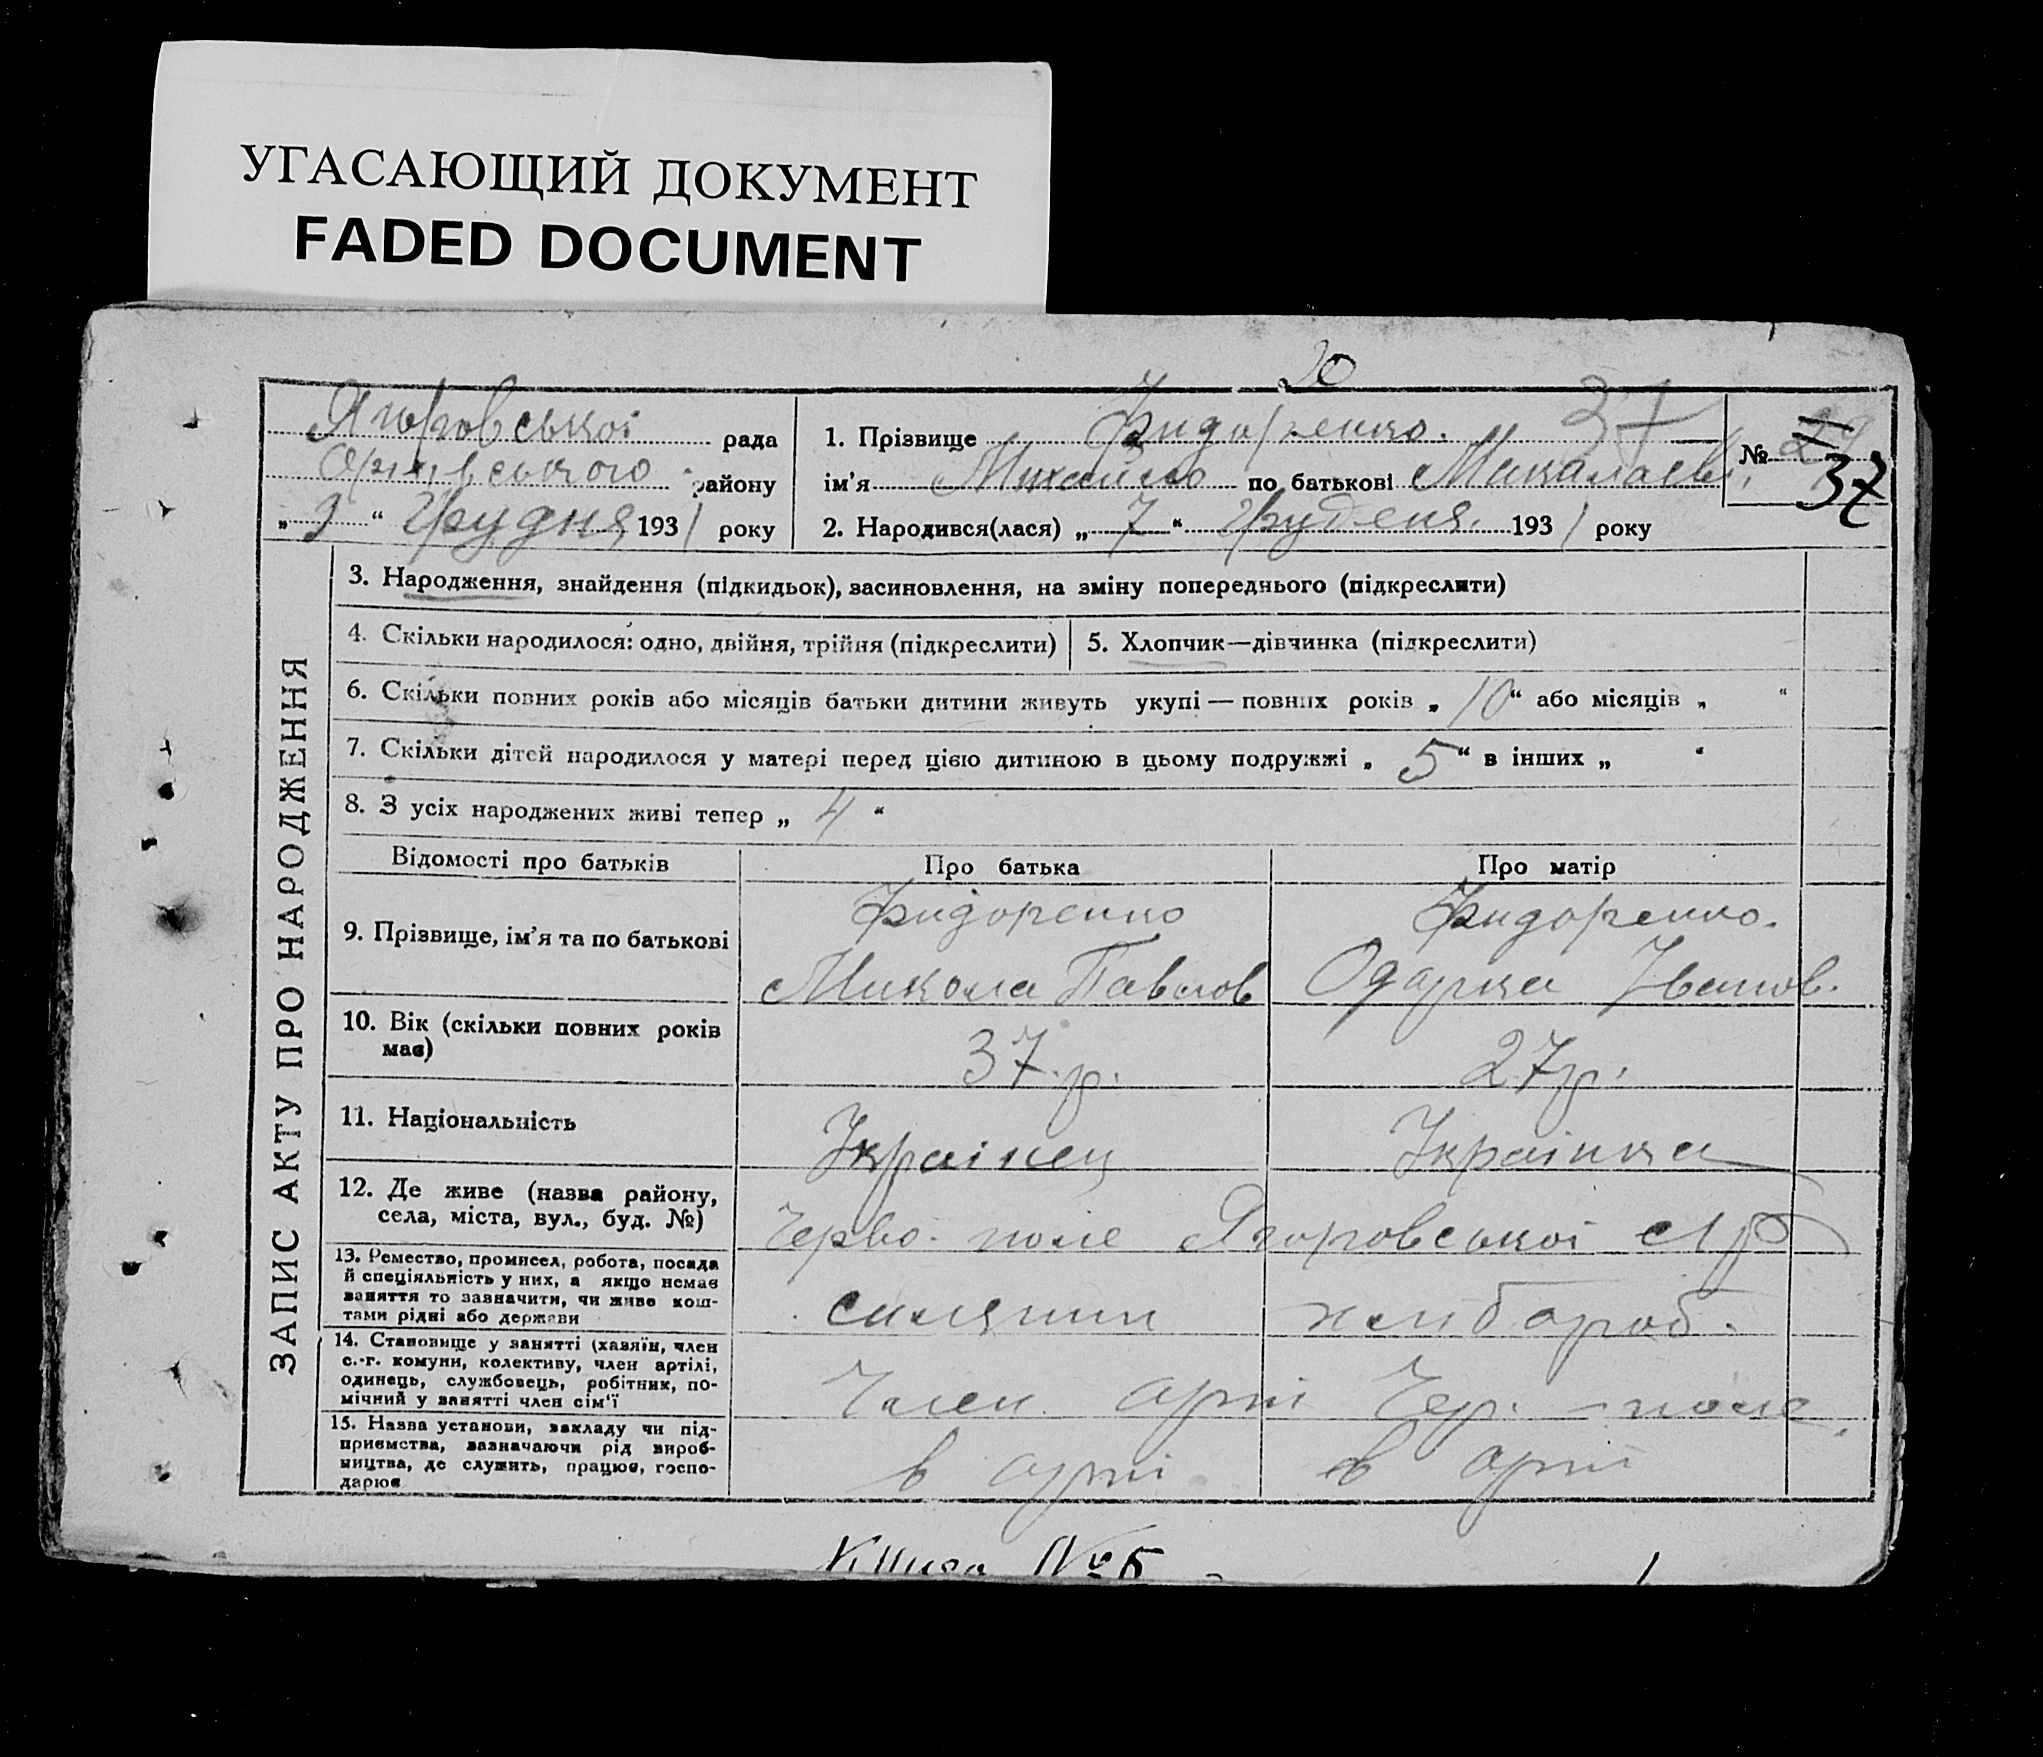 УГАСАЮЩИЙ ДОКУМЕНТ
FADED DOCUMENT
20
Ягоровської рада
району
" Грудня 1931 року
1. Прізвище Фидоренко. 37
ім'я Михайло по батькові Миколаєв.
2. Народився(лася) „ 7 " Груденя. 1931 року
№ 37
ЗАПИС АКТУ ПРО НАРОДЖЕННЯ
3. Народження, знайдення (підкидьок), засиновлення, на зміну попереднього (підкреслити)
4. Скільки народилося: одно, двійня, трійня (підкреслити)
5. Хлопчик—дівчинка (підкреслити)
6. Скільки повних років або місяців батьки дитини живуть укупі — повних років „ 10 " або місяців „ "
7. Скільки дітей народилося у матері перед цією дитиною в цьому подружжі „ 5 " в інших „ "
8. З усіх народжених живі тепер „ 4 "
Відомості про батьків
Про батька
Про матір
9. Прізвище, ім'я та по батькові
Фидоренко
Микола Павлов
Фидоренко.
Одарка Іванов.
10. Вік (скільки повних років
має)
37.р.
27р.
11. Національність
Українец
Українка
12. Де живе (назва району,
села, міста, вул., буд. №)
Черво. поле Ягоровської с/р
13. Ремество, промисел, робота, посада
й спеціяльність у них, а якщо немає
заняття то зазначити, чи живе кош-
тами рідні або держави
силянин хлибороб.
14. Становище у занятті (хазяїн, член
с.-г. комуни, колективу, член артілі,
одинець, службовець, робітник, по-
мічний у занятті член сім'ї
Член арті Чер. - поле,
15. Назва установи, закладу чи під-
приємства, зазначаючи рід вироб-
ництва, де служить, працює, госпо-
дарює
в арті
в арті
Книга №5